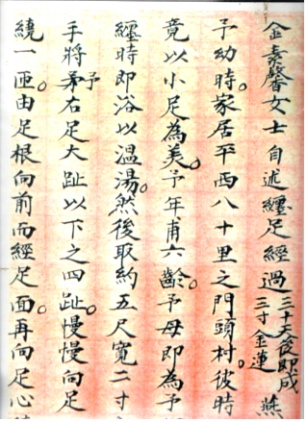 金素馨女士自述纏足經過三十天後即成三寸金蓮 燕
予幼時。家居平西八十里之門頭村。彼時
竟以小足為美。予年甫六齡。予母即為予
纏時即浴以溫湯。然後取約五尺寬二寸
手將予右足大趾以下之四趾。慢慢向足
繞一匝。由足根向前而經足面。再向足心